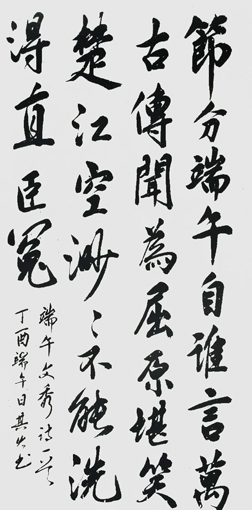 節分端午自誰言萬
古傳聞為屈原堪笑
楚江空渺々不能洗
得直臣冤
端午文秀詩一首
丁酉端午日其书